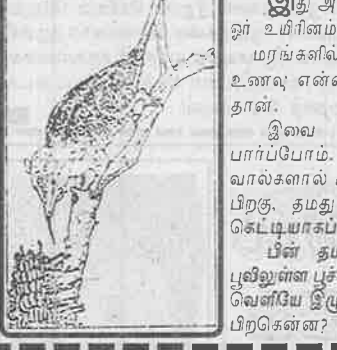 இது அ
ஓர் உயிரினம்
மரங்களில்
உணவு என்ன
தான்.
இவை
பார்ப்போம்.
வால்களால்
பிறகு, தமது
கெட்டியாகப்
பின் தம
பூவிலுள்ள பூச்
வெளியே இழு
பிறகென்ன?